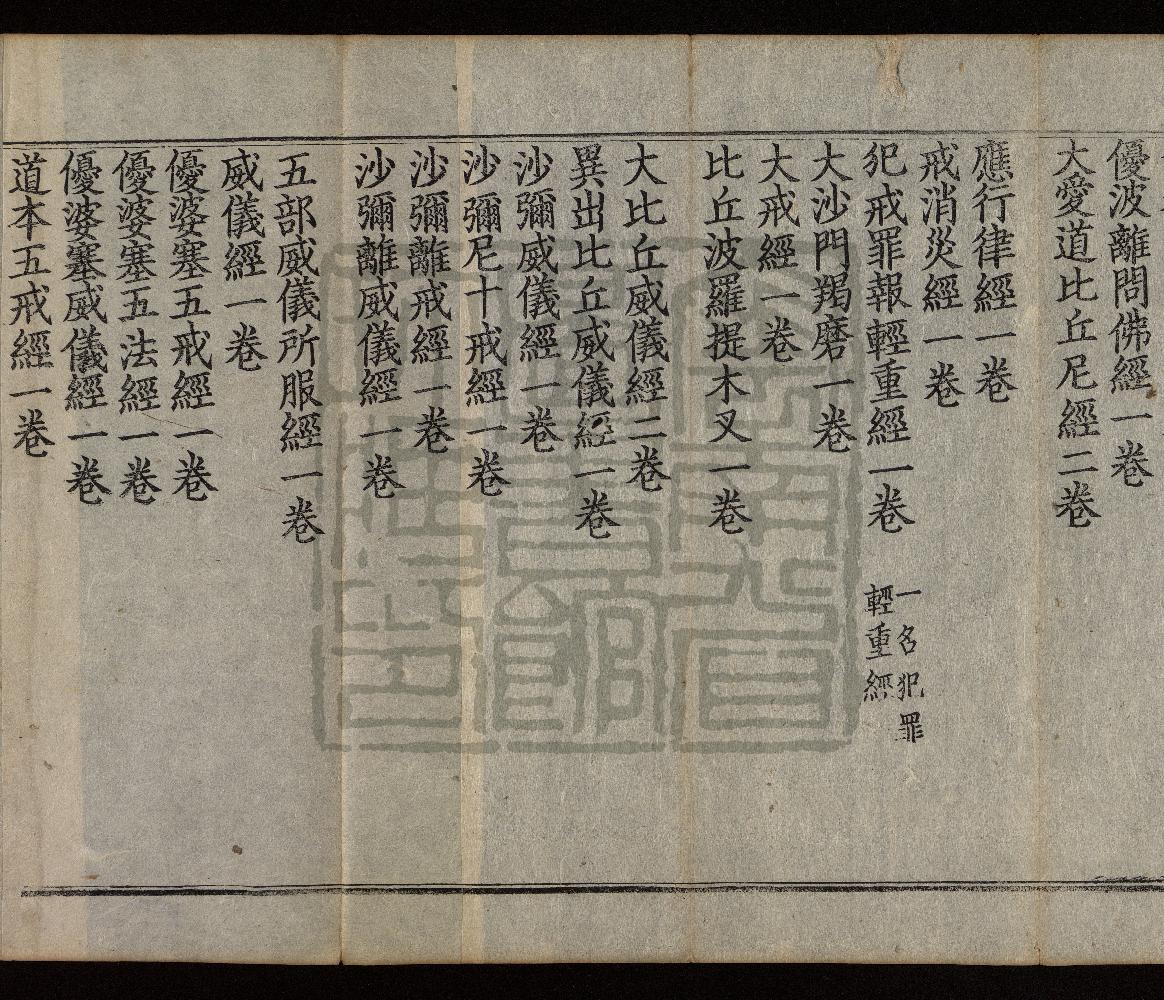 優波離問佛經一卷
大愛道比丘尼經二卷
應行律經一卷
戒消災經一卷
犯戒罪報輕重經一卷
一名犯罪
輕重經
大沙門羯磨一卷
大戒經一卷
比丘波羅提木叉一卷
大比丘威儀經二卷
異出比丘威儀經一卷
沙彌威儀經一卷
沙彌尼十戒經一卷
沙彌離戒經一卷
沙彌離威儀經一卷
五部威儀所服經一卷
威儀經一卷
優婆塞五戒經一卷
優婆塞五法經一卷
優婆塞威儀經一卷
道本五戒經一卷